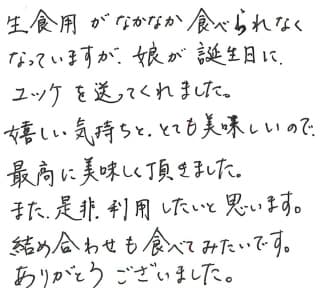 生食用がなかなか食べられなく
なっていますが、娘が誕生日に、
ユッケを送ってくれました。
嬉しい気持ちと、とても美味しいので、
最高に美味しく頂きました。
また、是非、利用したいと思います。
結め合わせも食べてみたいです。
ありがとうございました。